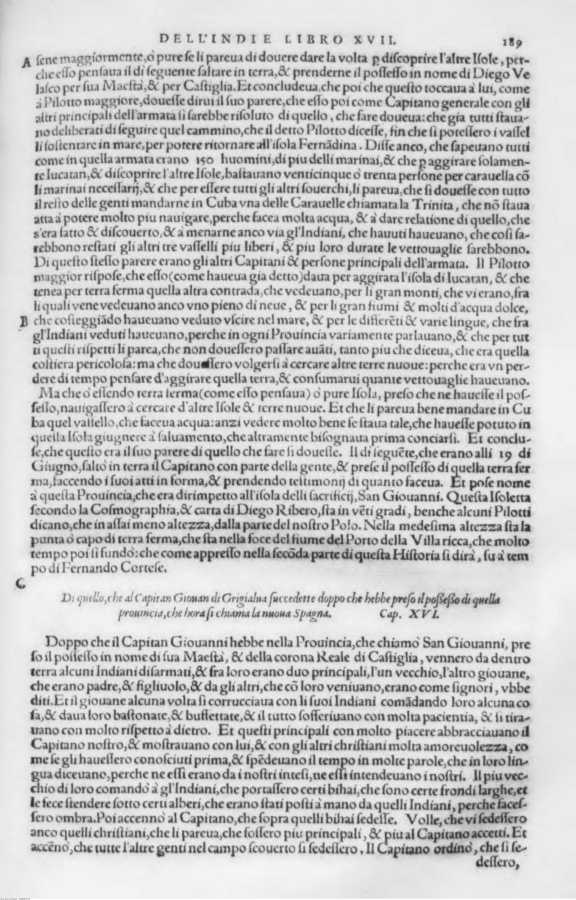 DELL'INDIE LIBRO XVII. 189
A sene maggiormente, ò pure se li pareua di douere dare la volta ꝑ discoprire l'altre Isole, per-
che esso pensaua il dì seguente saltare in terra, & prenderne il possesso in nome di Diego Ve
lasco per sua Maestà, & per Castiglia. Et concludeua, che poi che questo toccaua à lui, come
à Pilotto maggiore, douesse dirui il suo parere, che esso poi come Capitano generale con gli
altri principali dell'armata si sarebbe risoluto di quello, che fare doueua: che gia tutti staua-
no deliberati di seguire quel cammino, che il detto Pilotto dicesse, fin che si potessero i vassel
li sostentare in mare, per potere ritornare all'isola Fernādina. Disse anco, che sapeuano tutti
come in quella armata erano 150 huomini, di piu delli marinai, & che ꝑ aggirare solamen-
te Iucatan, & discoprire l'altre Isole, bastauano venticinque ò trenta persone per carauella cō
li marinai necessarij, & che per essere tutti gli altri souerchi, li pareua, che si douesse con tutto
il resto delle genti mandarne in Cuba vna delle Carauelle chiamata la Trinita, che nō staua
atta à potere molto piu nauigare, perche facea molta acqua, & à dare relatione di quello, che
s'era fatto & discouerto, & à menarne anco via gl'Indiani, che hauuti haueuano, che così sa-
rebbono restati gli altri tre vasselli piu liberi, & piu loro durate le vettouaglie sarebbono.
Di questo stesso parere erano gli altri Capitani & persone principali dell'armata. Il Pilotto
maggior rispose, che esso (come haueua gia detto) daua per aggirata l'isola di Iucatan, & che
tenea per terra ferma quella altra contrada, che vedeuano, per li gran monti, che vi erano, fra
li quali vene vedeuano anco vno pieno di neue, & per li gran fiumi & molti d'acqua dolce,
B che costeggiādo haueuano veduto vscire nel mare, & per le differēti & varie lingue, che fra
gl'Indiani veduti haueuano, perche in ogni Prouincia variamente parlauano, & che per tut
ti questi rispetti li parea, che non douessero passare auāti, tanto piu che diceua, che era quella
costiera pericolosa: ma che douessero volgersi à cercare altre terre nuoue: perche era vn per-
dere di tempo pensare d'aggirare quella terra, & consumarui quante vettouaglie haueuano.
Ma che ò essendo terra ferma (come esso pensaua) ò pure Isola, preso che ne hauesse il pos-
sesso, nauigassero à cercare d'altre Isole & terre nuoue. Et che li parea bene mandare in Cu
ba quel vassello, che faceua acqua: anzi vedere molto bene se staua tale, che hauesse potuto in
quella Isola giugnere à saluamento, che altramente bisognaua prima conciarsi. Et conclu-
se, che questo era il suo parere di quello che fare si douesse. Il dì seguēte, che erano alli 19 di
Giugno, saltò in terra il Capitano con parte della gente, & prese il possesso di quella terra fer
ma, faccendo i suoi atti in forma, & prendendo testimonij di quanto faceua. Et pose nome
à questa Prouincia, che era dirimpetto all'isola delli sacrificij, San Giouanni. Questa Isoletta
secondo la Cosmographia, & carta di Diego Ribero, sta in vēti gradi, benche alcuni Pilotti
dicano, che in assai meno altezza, dalla parte del nostro Polo. Nella medesima altezza sta la
punta ò capo di terra ferma, che sta nella foce del fiume del Porto della Villa ricca, che molto
tempo poi si fundò: che come appresso nella secōda parte di questa Historia si dirà, fu à tem
po di Fernando Cortese.
C
Di quello, che al Capitan Giouan di Grigialua succedette doppo che hebbe preso il possesso di quella
prouincia, che hora si chiama la nuoua Spagna. Cap. XVI.
Doppo che il Capitan Giouanni hebbe nella Prouincia, che chiamò San Giouanni, pre
so il possesso in nome di sua Maestà, & della corona Reale di Castiglia, vennero da dentro
terra alcuni Indiani disarmati, & fra loro erano duo principali, l'un vecchio, l'altro giouane,
che erano padre, & figliuolo, & da gli altri, che cō loro veniuano, erano come signori, vbbe
diti. Et il giouane alcuna volta si corrucciaua con li suoi Indiani comādando loro alcuna co
sa, & daua loro bastonate, & buffettate, & il tutto sofferiuano con molta pacientia, & si tira-
uano con molto rispetto à dietro. Et questi principali con molto piacere abbracciauano il
Capitano nostro, & mostrauano con lui, & con gli altri christiani molta amoreuolezza, co
me se gli hauessero conosciuti prima, & spēdeuano il tempo in molte parole, che in loro lin-
gua diceuano, perche ne essi erano da i nostri intesi, ne essi intendeuano i nostri. Il piu vec-
chio di loro comandò à gl'Indiani, che portassero certi bihai, che sono certe frondi larghe, et
le fece stendere sotto certi alberi, che erano stati posti à mano da quelli Indiani, perche faces-
sero ombra. Poi accennò al Capitano, che sopra quelli bihai sedesse. Volle, che vi sedessero
anco quelli christiani, che li pareua, che fossero piu principali, & piu al Capitano accetti. Et
accēnò, che tutte l'altre genti nel campo scouerto si sedessero, Il Capitano ordinò, che si se-
dessero,